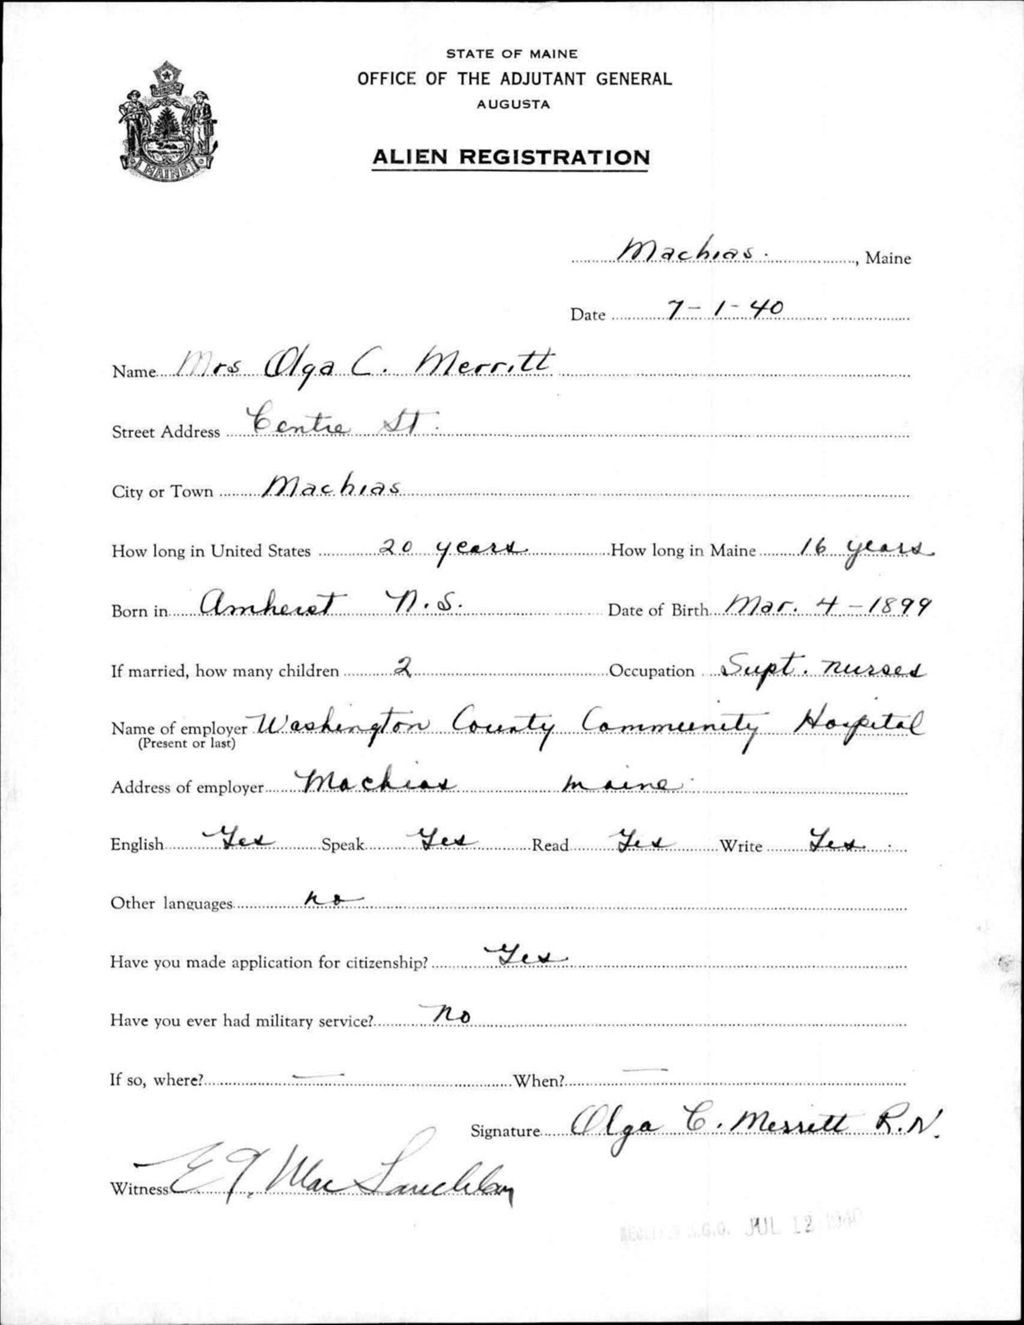 STATE OF MAINE
OFFICE OF THE ADJUTANT GENERAL
AUGUSTA
ALIEN REGISTRATION
MAINE
Machias. , Maine
Date 7-1-40
Name Mrs Olga C. Merritt
Street Address Centre St.
City or Town Machias
How long in United States 20 years How long in Maine 16 years
Born in Amherst N.S. Date of Birth Mar. 4-1899
If married, how many children 2 Occupation Supt. nurses
Name of employer Washington County Community Hospital
(Present or last)
Address of employer Machias Maine
English Yes Speak Yes Read Yes Write Yes
Other languages no
Have you made application for citizenship? Yes
Have you ever had military service? No
If so, where? — When? —
Signature Olga C. Merritt R.N.
Witness Mac Lauchlan
A.G.O. JUL 12 1940